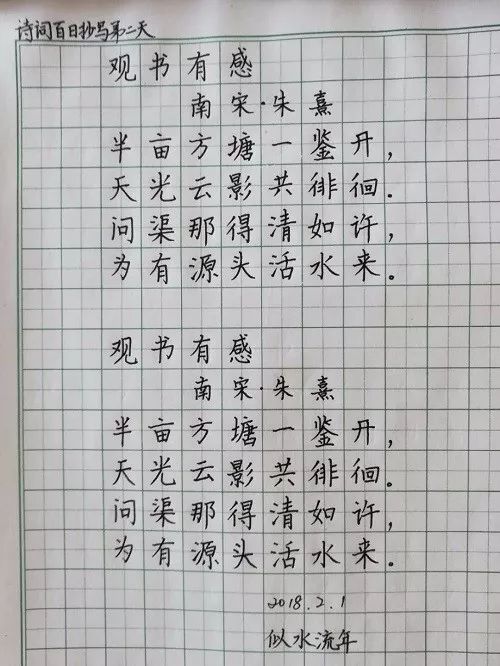 诗词百日抄写第二天
观书有感
南宋·朱熹
半亩方塘一鉴开，
天光云影共徘徊。
问渠那得清如许，
为有源头活水来。
观书有感
南宋·朱熹
半亩方塘一鉴开，
天光云影共徘徊。
问渠那得清如许，
为有源头活水来。
2018.2.1
似水流年